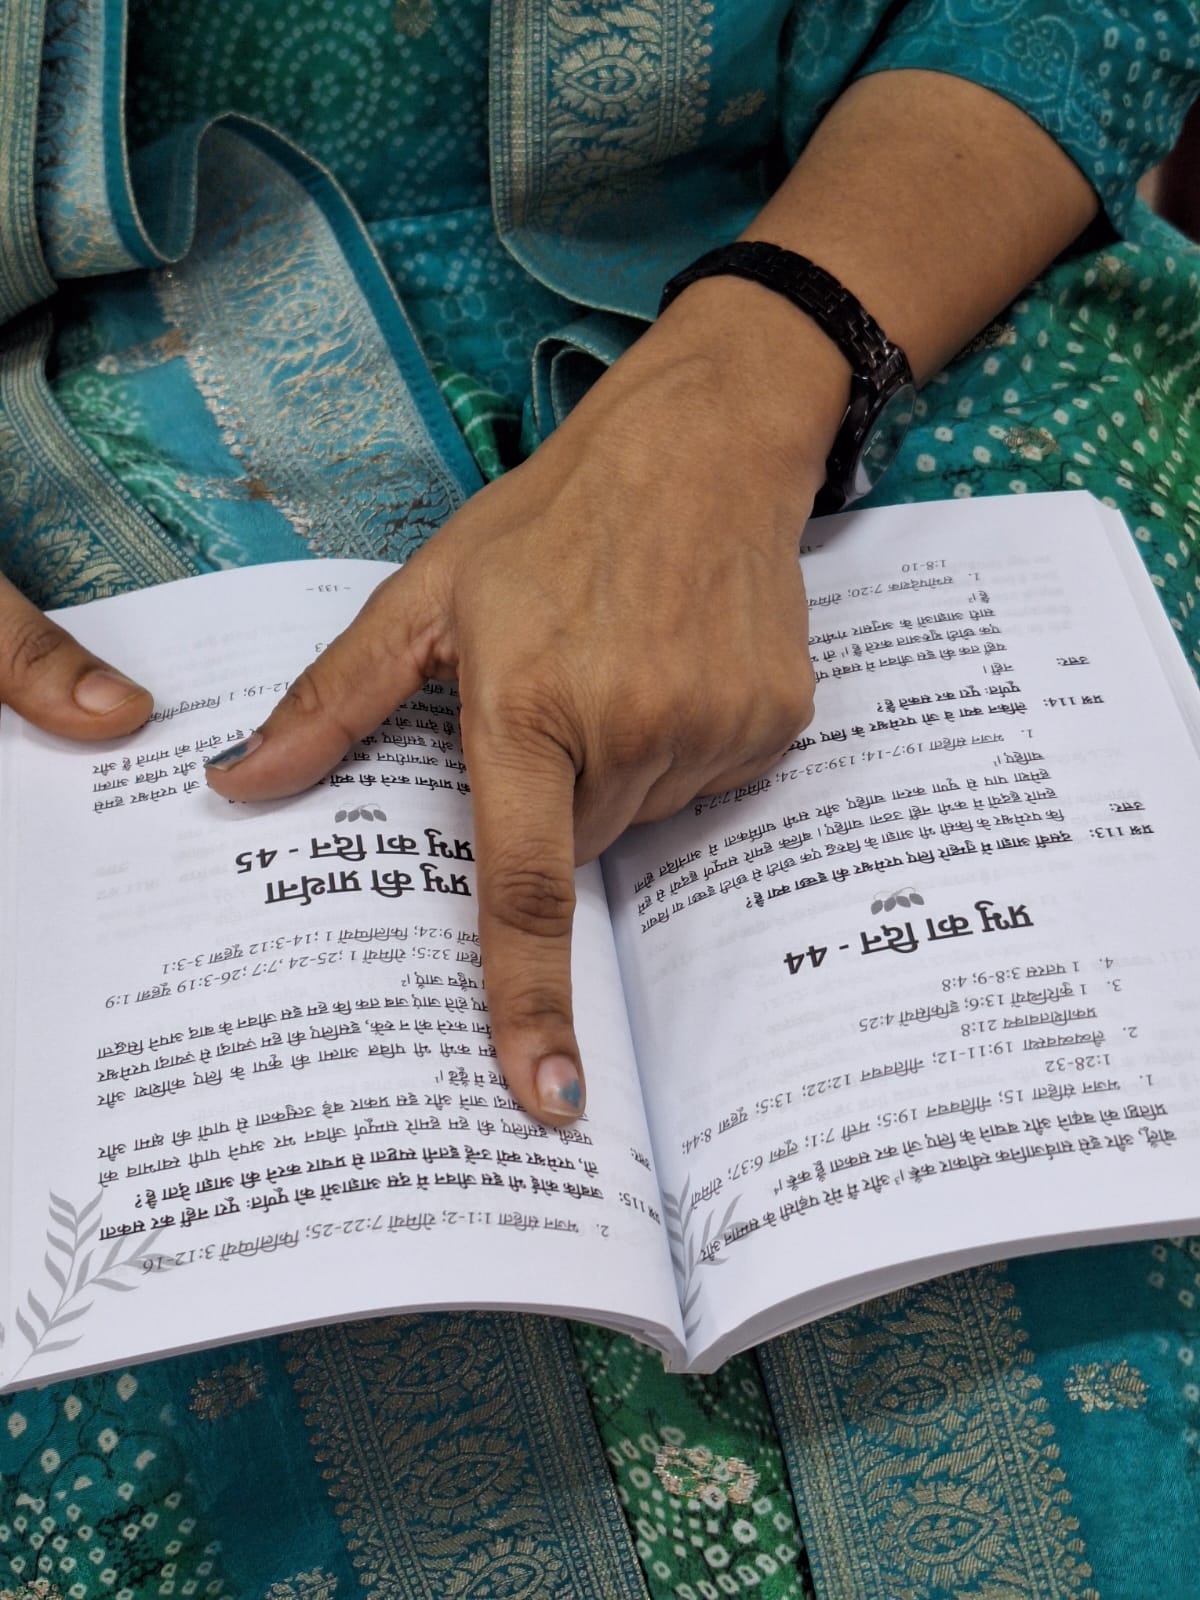 बोलूँ, और इसे सार्वजानिक स्वीकार करूँ।³ और मैं मेरे पड़ोसी के सम्मान और
प्रतिष्ठा को बढ़ाने और बचाने के लिए जो कर सकता हूँ करूँ।⁴
1. भजन संहिता 15; नीतिवचन 19:5; मत्ती 7:1; लूका 6:37; रोमियों
1:28-32
2. लैव्यव्यवस्था 19:11-12; नीतिवचन 12:22; 13:5; यूहन्ना 8:44;
प्रकाशितवाक्य 21:8
3. 1 कुरिन्थियों 13:6; इफिसियों 4:25
4. 1 पतरस 3:8-9; 4:8
प्रभु का दिन - 44
प्रश्न 113: दसवीं आज्ञा में तुम्हारे लिए परमेश्वर की इच्छा क्या है?
उत्तर: कि परमेश्वर के किसी भी आज्ञा के विरुद्ध एक छोटी से छोटी इच्छा या विचार
हमारे हृदयों में कभी नहीं उठना चाहिए। बल्कि हमारे सम्पूर्ण हृदयों से हमें
हमेशा पाप से घृणा करना चाहिए और सभी धार्मिकता में आनन्दित होना
चाहिए।¹
1. भजन संहिता 19:7-14; 139:23-24; रोमियों 7:7-8
प्रश्न 114: लेकिन क्या वे जो परमेश्वर के लिए
पूर्णतः पूरा कर सकते हैं?
उत्तर: नहीं।
यहाँ तक की इस जीवन में सबसे
एक छोटी शुरुआत करते हैं।¹ तो
सारी आज्ञाओं के अनुसार गंभीरता
हैं।²
1. सभोपदेशक 7:20; रोमियों
1:8-10
2. भजन संहिता 1:1-2; रोमियों 7:22-25; फिलिप्पियों 3:12-16
प्रश्न 115: जबकि कोई भी इस जीवन में दस आज्ञाओं को पूर्णतः पूरा नहीं कर सकता
तो, परमेश्वर क्यों उन्हें इतनी स्पष्टता से प्रचार करने की आज्ञा देता है?
उत्तर: पहली, इसलिए की हम हमारे सम्पूर्ण जीवन भर अपने पापी स्वाभाव को
ज़्यादा जाने और इस प्रकार बड़े उत्सुकता से पापों की क्षमा और
में ढूँढें।¹
हम कभी भी पवित्र आत्मा की कृपा के लिए कोशिश और
करने को न रुकें, इसलिए की हम ज़्यादा से ज़्यादा परमेश्वर
होते जाएं जब तक कि हम इस जीवन के बाद अपने सिद्धता
पहुंच जाएं।²
32:5; रोमियों 3:19-26; 7:7, 24-25; 1 यूहन्ना 1:9
9:24; फिलिप्पियों 3:12-14; 1 यूहन्ना 3:1-3
प्रभु की प्रार्थना
प्रभु का दिन - 45
प्रार्थना करने की क्यों
जो परमेश्वर हमसे
और पवित्र आत्मा
इन दोनों को मांगते हैं और
12-19; 1 थिस्सलुनीकि
- 133 -